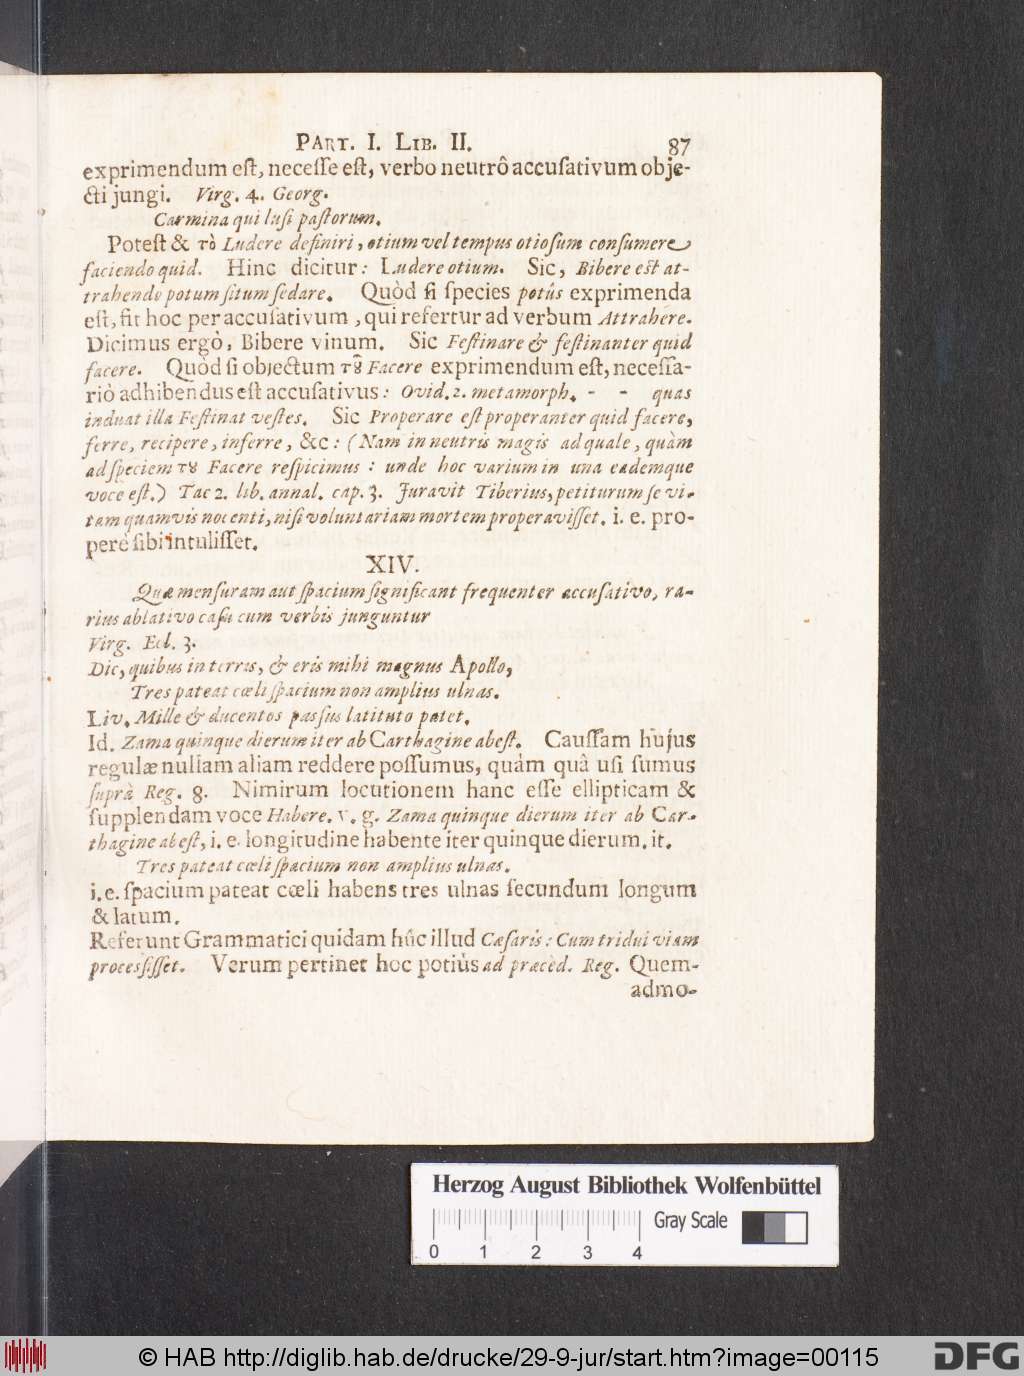 PART. I. LIB. II. 87
exprimendum eſt, neceſſe eſt, verbo neutrô accuſativum obje-
cti jungi. Virg. 4. Georg.
Carmina qui luſi paſtorum.
Poteſt & τὸ Ludere definiri, otium vel tempus otioſum conſumere
faciendo quid. Hinc dicitur: Ludere otium. Sic, Bibere eſt at-
trahendo potum ſitum ſedare. Quòd ſi ſpecies potûs exprimenda
eſt, fit hoc per accuſativum, qui refertur ad verbum Attrahere.
Dicimus ergò, Bibere vinum. Sic Feſtinare & feſtinanter quid
facere. Quòd ſi objectum τȣ͂ Facere exprimendum eſt, neceſſa-
riò adhibendus eſt accuſativus: Ovid. 2. metamorph. - - quas
induat illa Feſtinat veſtes. Sic Properare eſt properanter quid facere,
ferre, recipere, inferre, &c: (Nam in neutris magis ad quale, quàm
ad ſpeciem τȣ Facere reſpicimus: unde hoc varium in una eademque
voce eſt.) Tac 2. lib. annal. cap. 3. Juravit Tiberius, petiturum ſe vi-
tam quamvis nocenti, niſi voluntariam mortem properaviſſet. i. e. pro-
perè ſibi intuliſſet.
XIV.
Quæ menſuram aut ſpacium ſignificant frequenter accuſativo, ra-
rius ablativo caſu cum verbis junguntur
Virg. Ecl. 3.
Dic, quibus in terris, & eris mihi magnus Apollo,
Tres pateat cœli ſpacium non amplius ulnas.
Liv. Mille & ducentos paſſus latituto patet.
Id. Zama quinque dierum iter ab Carthagine abeſt. Cauſſam hujus
regulæ nullam aliam reddere poſſumus, quàm quâ uſi ſumus
ſuprà Reg. 8. Nimirum locutionem hanc eſſe ellipticam &
ſupplendam voce Habere. v. g. Zama quinque dierum iter ab Car-
thagine abeſt, i. e. longitudine habente iter quinque dierum. it.
Tres pateat cœli ſpacium non amplius ulnas.
i. e. ſpacium pateat cœli habens tres ulnas ſecundum longum
& latum.
Referunt Grammatici quidam hûc illud Cæſaris: Cum tridui viam
proceſſiſſet. Verum pertinet hoc potiùs ad præced. Reg. Quem-
admo-
Herzog August Bibliothek Wolfenbüttel
Gray Scale
0 1 2 3 4
© HAB http://diglib.hab.de/drucke/29-9-jur/start.htm?image=00115
DFG